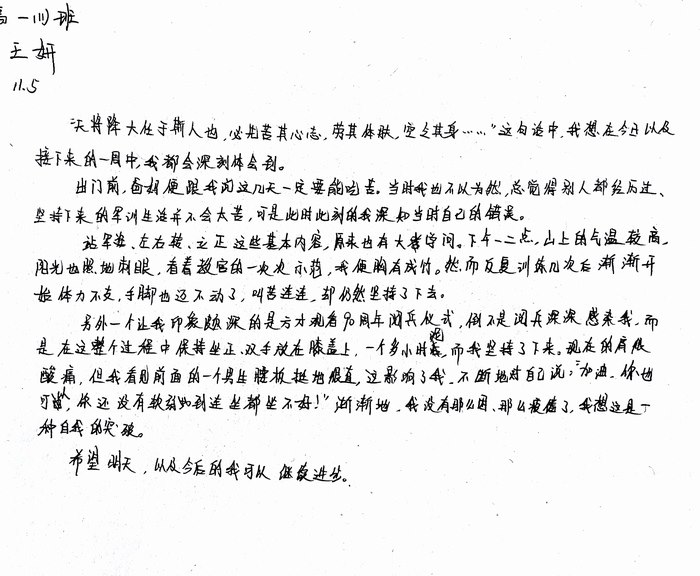 高一(11)班
王妍
11.5
"天将降大任于斯人也,必先苦其心志,劳其体肤,空乏其身……"这句话中,我想在今日以及
接下来的一周中,我都会深刻体会到。
出门前,爸妈便跟我说这几天一定要能吃苦。当时我也不以为然,总觉得别人都经历过、
坚持下来的军训生活并不会太苦,可是此时此刻的我深知当时自己的错误。
站军姿、左右转、立正这些基本内容,原来也有大学问。下午一二点,山上的气温较高,
阳光也照地刺眼,看着教官的一次次示范,我便胸有成竹。然而反复训练几次后渐渐开
始体力不支,手脚也迈不动了,叫苦连连,却仍然坚持了下去。
另外一个让我印象颇深的是方才观看90周年阅兵仪式,倒不是阅兵深深感染我,而
是在这整个过程中保持坐正、双手放在膝盖上,一个多小时呢,而我坚持了下来。现在的肩很
酸痛,但我看见前面的一个男生腰板挺地很直,这影响了我,不断地对自己说:"加油,你也
可以,你还没有软弱到连坐都坐不好!"渐渐地,我没有那么困、那么疲倦了,我想这是一
种自我的突破。
希望明天,以及今后的我可以继续进步。